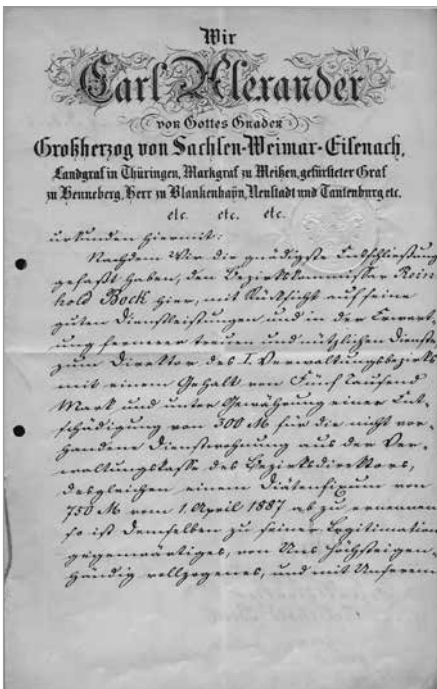 Wir
Carl Alexander
von Gottes Gnaden
Großherzog von Sachsen-Weimar-Eisenach,
Landgraf in Thüringen, Markgraf zu Meißen, gefürsteter Graf
zu Henneberg, Herr zu Blankenhayn, Neustadt und Tautenburg etc.
etc. etc. etc.
urkunden hiermit:
Nachdem Wir die gnädigste Entschließung
gefaßt haben, den Bezirkskommissar Rein-
hold Bock hier, mit Rücksicht auf seine
guten Dienstleistungen und in der Erwart-
ung fernerer treuen und nützlichen Dienste
zum Direktor des I. Verwaltungsbezirks
mit einem Gehalt von Fünf Tausend
Mark und unter Gewährung einer Ent-
schädigung von 300 M für die nicht vor-
handene Dienstwohnung aus der Ver-
waltungskasse des Bezirksdirektors,
desgleichen einem Diätenfixum von
750 M vom 1. April 1887 ab zu ernennen
so ist demselben zu seiner Legitimation
gegenwärtiges, von Uns höchsteigen-
händig vollzogenes, und mit Unserem